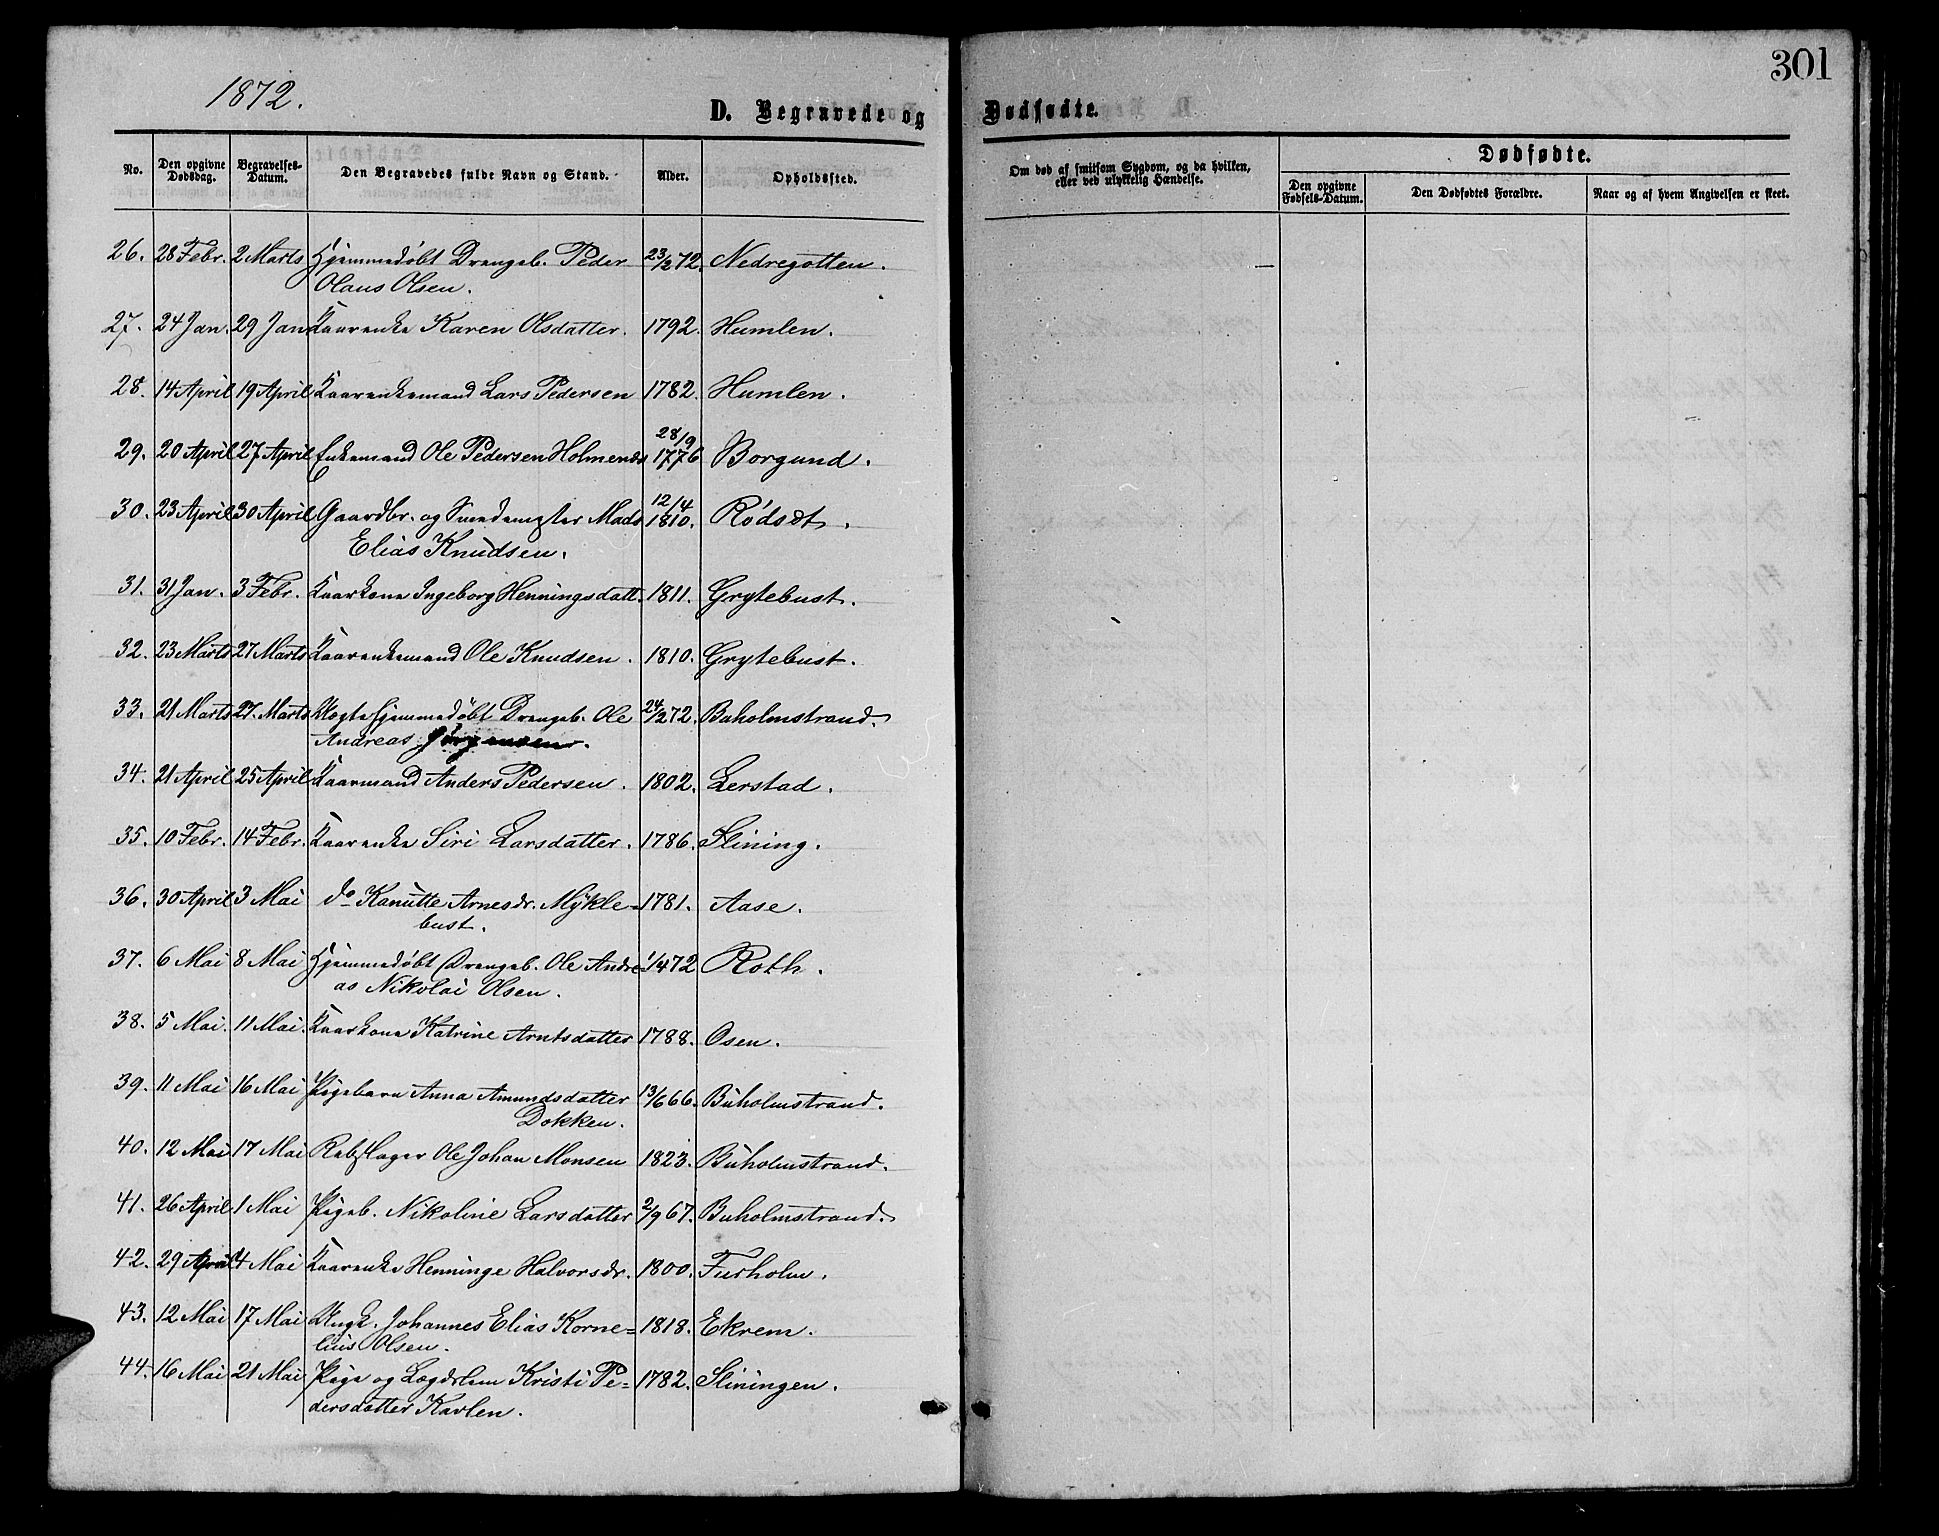 301
1872.
D. Begravede og Dødfødte.
No. Den opgivne Dødsdag. Begravelses-Datum. Den Begravedes fulde Navn og Stand. Alder. Opholdssted. Om død af smitsom Sygdom, og da hvilken, eller ved ulykkelig Hændelse. Dødfødte.
Den opgivne Fødsels-Datum. Den Dødfødtes Forældre. Naar og af hvem Angivelsen er skeet.
26. 28 Febr. 2 Marts Hjemmedøbt Drengeb. Peder 23/2 72. Nedregotten. —
Olaus Olsen.
27. 24 Jan. 29 Jan Kaarenke Karen Olsdatter. 1792. Humlen.
28. 14 April 19 April Kaarenkemand Lars Pedersen 1782. Humlen.
29. 20 April 27 April Enkemand Ole Pedersen Holmenæs 28/9 1776 Borgund.
30. 23 April 30 April Gaardbr. og Smedemester Mads 12/4 1810. Rødsæt.
Elias Knudsen.
31. 31 Jan. 3 Febr. Kaarkone Ingeborg Henningsdatt. 1811. Grytebust.
32. 23 Marts 27 Marts Kaarenkemand Ole Knudsen. 1810. Grytebust.
33. 21 Marts 27. Marts Uægte hjemmedøbt Drengeb. Ole 24/2 72. Buholmstrand.
Andreas Jørgensen.
34. 21 April 25 April Kaarmand Anders Pedersen. 1802. Lerstad.
35. 10 Febr. 14 Febr. Kaarenke Siri Larsdatter. 1786. Slining.
36. 30 April 3 Mai do Kanutte Arnesdr. Mykle= 1781. Aase.
bust.
37. 6 Mai 8 Mai Hjemmedøbt Drengeb. Ole Andre= 1/4 72 Roth.
as Nikolai Olsen.
38. 5 Mai. 11 Mai. Kaarkone Katrine Arntsdatter 1788. Osen.
39. 11 Mai 16 Mai Pigebarn Anna Amundsdatter 13/6 66. Buholmstrand.
Dokken.
40. 12 Mai 17 Mai Rebslager Ole Johan Monsen 1823. Buholmstrand.
41. 26 April 1 Mai Pigeb. Nikoline Larsdatter 2/9 67. Buholmstrand.
42. 29 April 4 Mai Kaarenke Henninge Halvorsdr. 1800. Furholm.
43. 12 Mai 17 Mai Ungk. Johannes Elias Korne= 1818. Ekrem.
lius Olsen.
44. 16 Mai 21 Mai Pige og Lægdslem Kristi Pe= 1782. Sliningen.
dersdatter Kavlen.